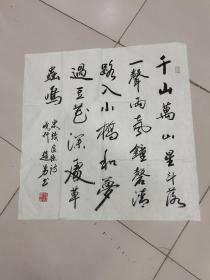 千山萬山星斗落
一聲兩聲鐘磬清
路入小橋和夢
過豆花深處草
蟲鳴